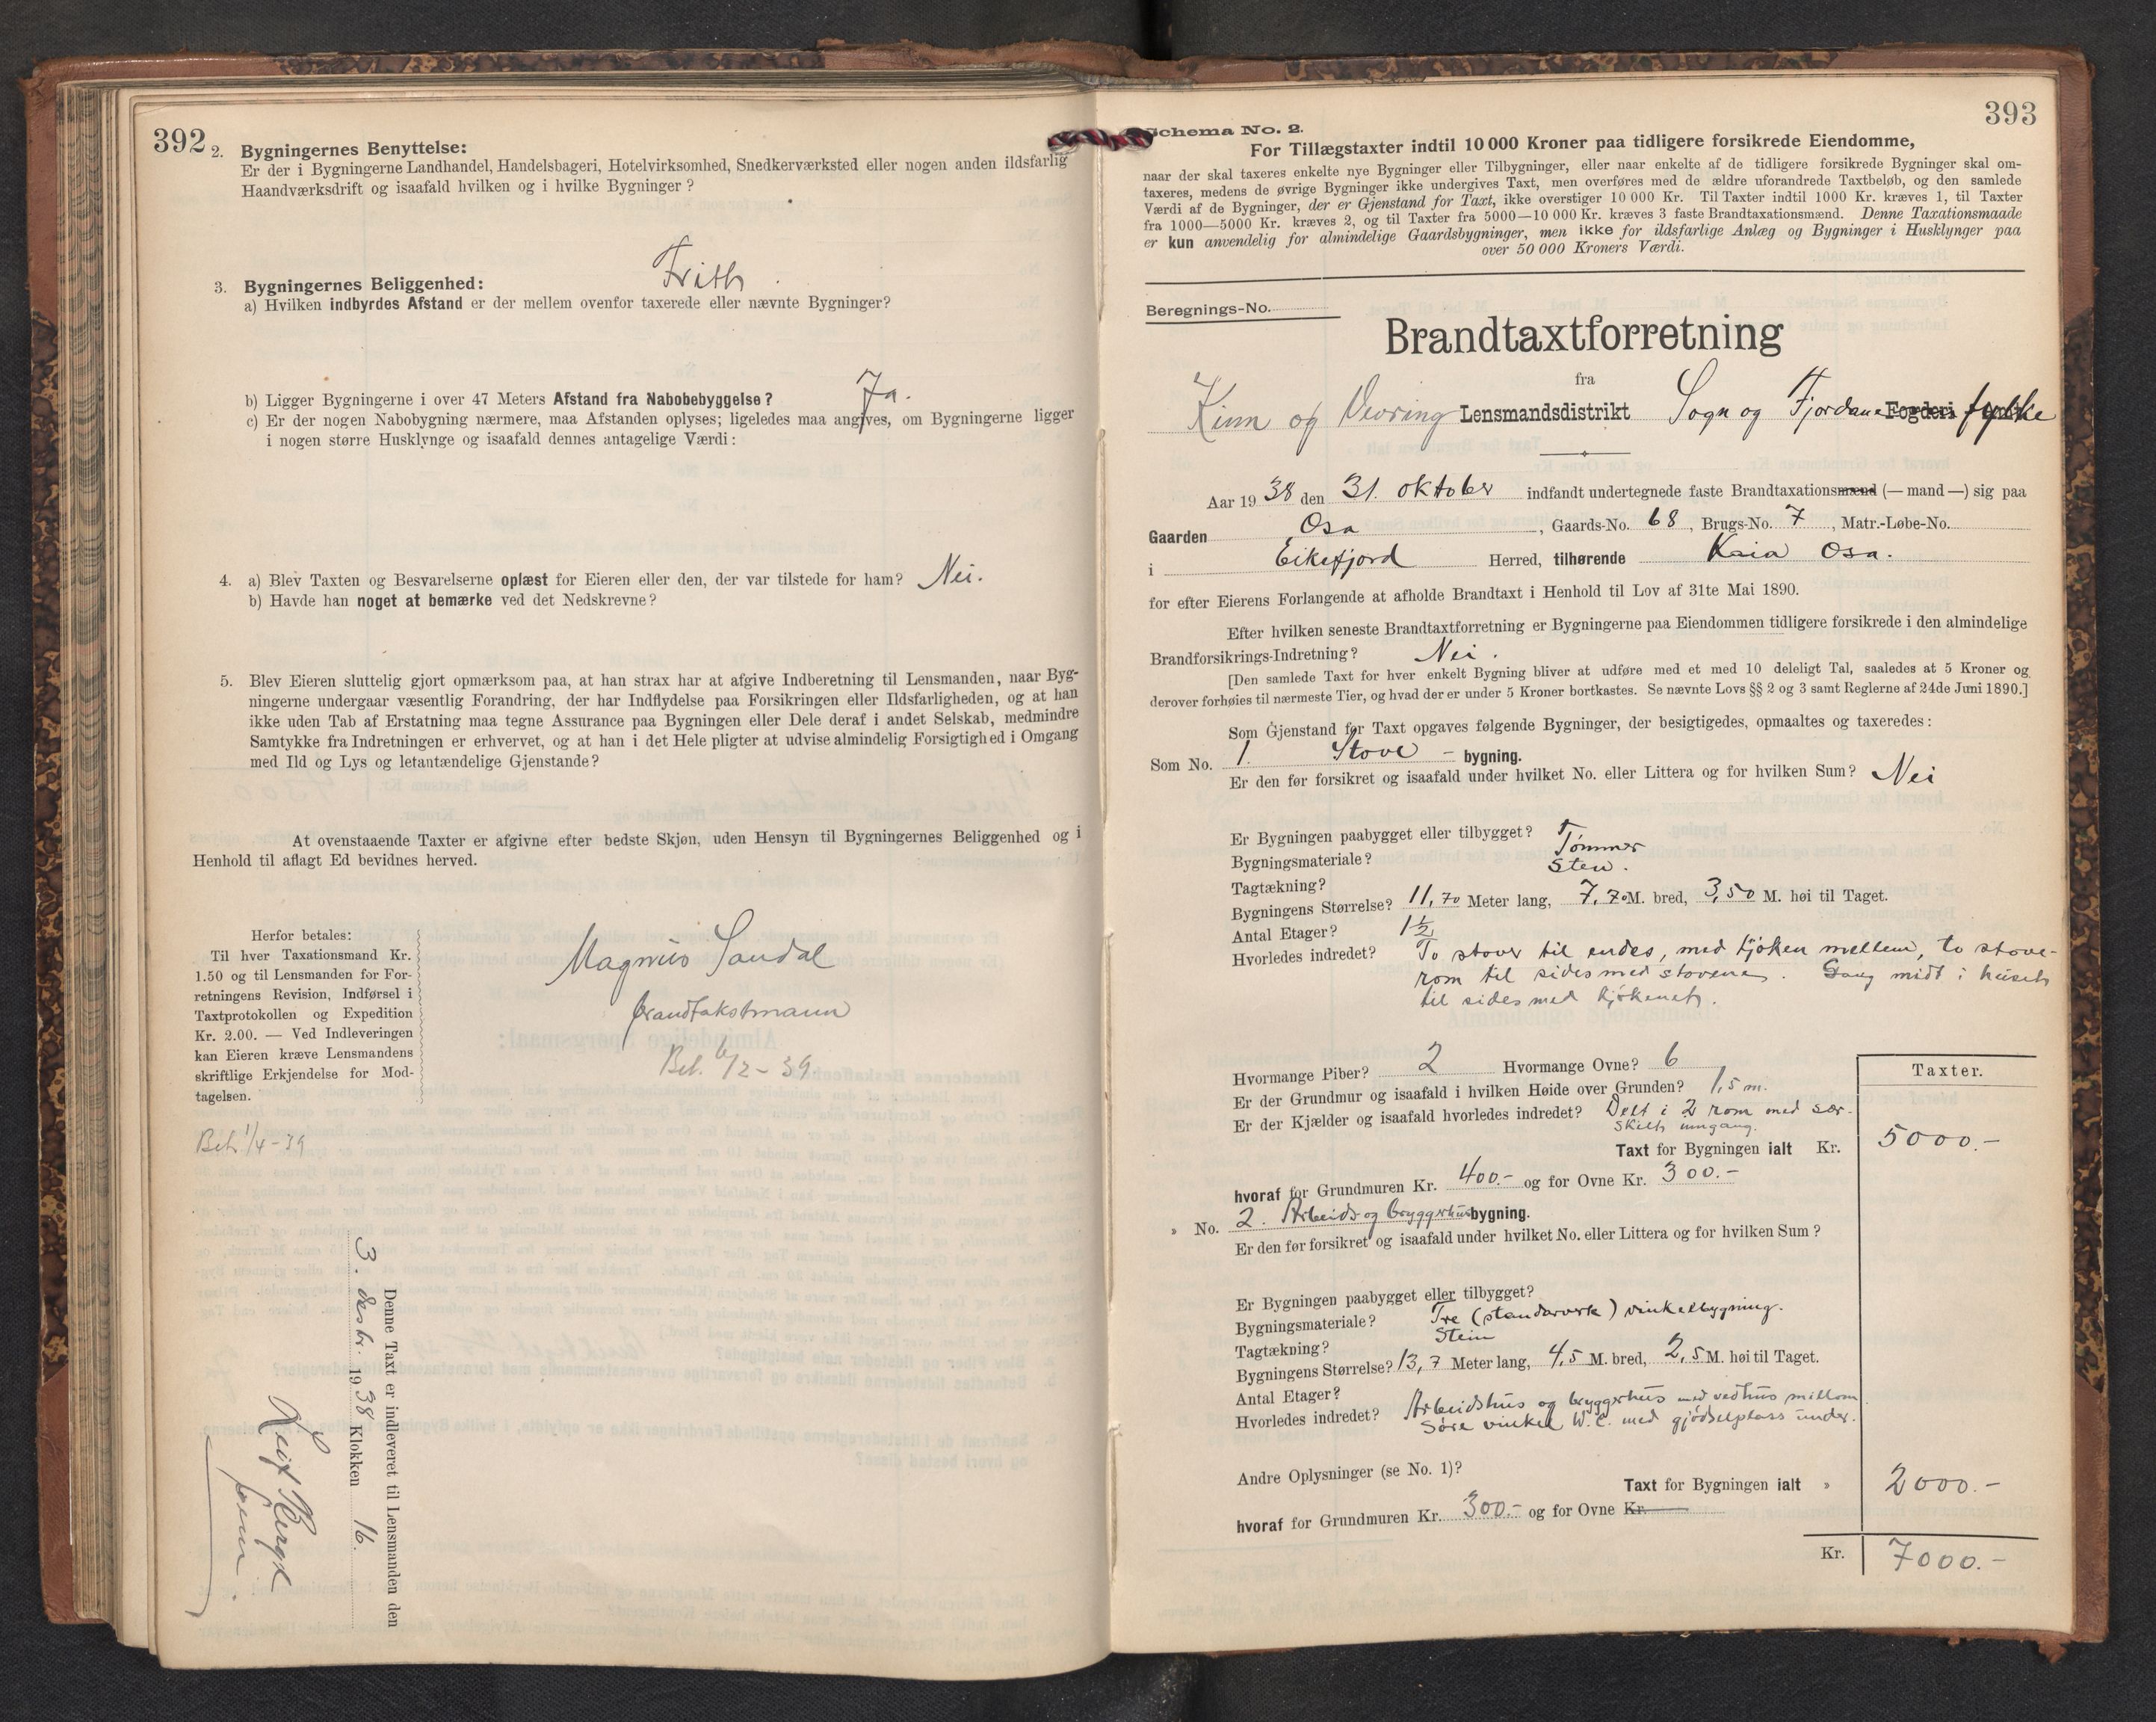 392
2. Bygningernes Benyttelse:
Er der i Bygningerne Landhandel, Handelsbageri, Hotelvirksomhed, Snedkerværksted eller nogen anden ildsfarlig
Haandværksdrift og isaafald hvilken og i hvilke Bygninger?
3. Bygningernes Beliggenhed:
Fritt
a) Hvilken indbyrdes Afstand er der mellem ovenfor taxerede eller nævnte Bygninger?
b) Ligger Bygningerne i over 47 Meters Afstand fra Nabobebyggelse? Ja.
c) Er der nogen Nabobygning nærmere, maa Afstanden oplyses; ligeledes maa angives, om Bygningerne ligger
i nogen større Husklynge og isaafald dennes antagelige Værdi:
4. a) Blev Taxten og Besvarelserne oplæst for Eieren eller den, der var tilstede for ham? Nei.
b) Havde han noget at bemærke ved det Nedskrevne?
5. Blev Eieren sluttelig gjort opmærksom paa, at han strax har at afgive Indberetning til Lensmanden, naar Byg-
ningerne undergaar væsentlig Forandring, der har Indflydelse paa Forsikringen eller Ildsfarligheden, og at han
ikke uden Tab af Erstatning maa tegne Assurance paa Bygningen eller Dele deraf i andet Selskab, medmindre
Samtykke fra Indretningen er erhvervet, og at han i det Hele pligter at udvise almindelig Forsigtighed i Omgang
med Ild og Lys og letantændelige Gjenstande?
At ovenstaaende Taxter er afgivne efter bedste Skjøn, uden Hensyn til Bygningernes Beliggenhed og i
Henhold til aflagt Ed bevidnes herved.
Herfor betales:
Til hver Taxationsmand Kr.
1.50 og til Lensmanden for For-
retningens Revision, Indførsel i
Taxtprotokollen og Expedition
Kr. 2.00. — Ved Indleveringen
kan Eieren kræve Lensmandens
skriftlige Erkjendelse for Mod-
tagelsen.
Magnus Sandal
brandtakstmann
Bet. 6/2 - 39.
Bet. 1/4 - 39
Denne Taxt er indleveret til Lensmanden den
3. desbr. 1938 Klokken 16.
393
Schema No. 2.
For Tillægstaxter indtil 10 000 Kroner paa tidligere forsikrede Eiendomme,
naar der skal taxeres enkelte nye Bygninger eller Tilbygninger, eller naar enkelte af de tidligere forsikrede Bygninger skal om-
taxeres, medens de øvrige Bygninger ikke undergives Taxt, men overføres med de ældre uforandrede Taxtbeløb, og den samlede
Værdi af de Bygninger, der er Gjenstand for Taxt, ikke overstiger 10 000 Kr. Til Taxter indtil 1000 Kr. kræves 1, til Taxter
fra 1000—5000 Kr. kræves 2, og til Taxter fra 5000—10 000 Kr. kræves 3 faste Brandtaxationsmænd. Denne Taxationsmaade
er kun anvendelig for almindelige Gaardsbygninger, men ikke for ildsfarlige Anlæg og Bygninger i Husklynger paa
over 50 000 Kroners Værdi.
Beregnings-No.
Brandtaxtforretning
fra
Kinn og Vevring Lensmandsdistrikt Sogn og Fjordane Fogderi fylke
Aar 1938 den 31. oktober indfandt undertegnede faste Brandtaxationsmænd (— mand —) sig paa
Gaarden Osa, Gaards-No. 68, Brugs-No. 7, Matr.-Løbe-No.
i Eikefjord Herred, tilhørende Kaia Osa.
for efter Eierens Forlangende at afholde Brandtaxt i Henhold til Lov af 31te Mai 1890.
Efter hvilken seneste Brandtaxtforretning er Bygningerne paa Eiendommen tidligere forsikrede i den almindelige
Brandforsikrings-Indretning? Nei.
[Den samlede Taxt for hver enkelt Bygning bliver at udføre med et med 10 deleligt Tal, saaledes at 5 Kroner og
derover forhøies til nærmeste Tier, og hvad der er under 5 Kroner bortkastes. Se nævnte Lovs §§ 2 og 3 samt Reglerne af 24de Juni 1890.]
Som Gjenstand for Taxt opgaves følgende Bygninger, der besigtigedes, opmaaltes og taxeredes:
Som No. 1. Stove - bygning.
Er den før forsikret og isaafald under hvilket No. eller Littera og for hvilken Sum? Nei
Er Bygningen paabygget eller tilbygget?
Bygningsmateriale? Tømmer
Tagtækning? Sten.
Bygningens Størrelse? 11,70 Meter lang, 7,70 M. bred, 3,50 M. høi til Taget.
Antal Etager? 1½
Hvorledes indredet? To stover til endes, med kjøken mellem, to stove-
rom til sides med stovene. Gang midt i huset
til sides med kjøkenet.
Hvormange Piber? 2 Hvormange Ovne? 6
Er der Grundmur og isaafald i hvilken Høide over Grunden? 1,5 m.
Er der Kjælder og isaafald hvorledes indredet? Delt i 2 rom med sær-
skilt inngang.
Taxter.
Taxt for Bygningen ialt Kr. 5000.-
hvoraf for Grundmuren Kr. 400.- og for Ovne Kr. 300.-
» No. 2. Arbeids og bryggerhus bygning.
Er den før forsikret og isaafald under hvilket No. eller Littera og for hvilken Sum?
Er Bygningen paabygget eller tilbygget?
Bygningsmateriale? Tre (standarverk) vinkelbygning.
Tagtækning? Stein
Bygningens Størrelse? 13,7 Meter lang, 4,5 M. bred, 2,5 M. høi til Taget.
Antal Etager?
Hvorledes indredet? Arbeidshus og bryggerhus med vedhus millom
Søre vinkel W.C. med gjødselplass under.
Andre Oplysninger (se No. 1)?
Taxt for Bygningen ialt » 2000.-
hvoraf for Grundmuren Kr. 300.- og for Ovne Kr.
Kr. 7000.-